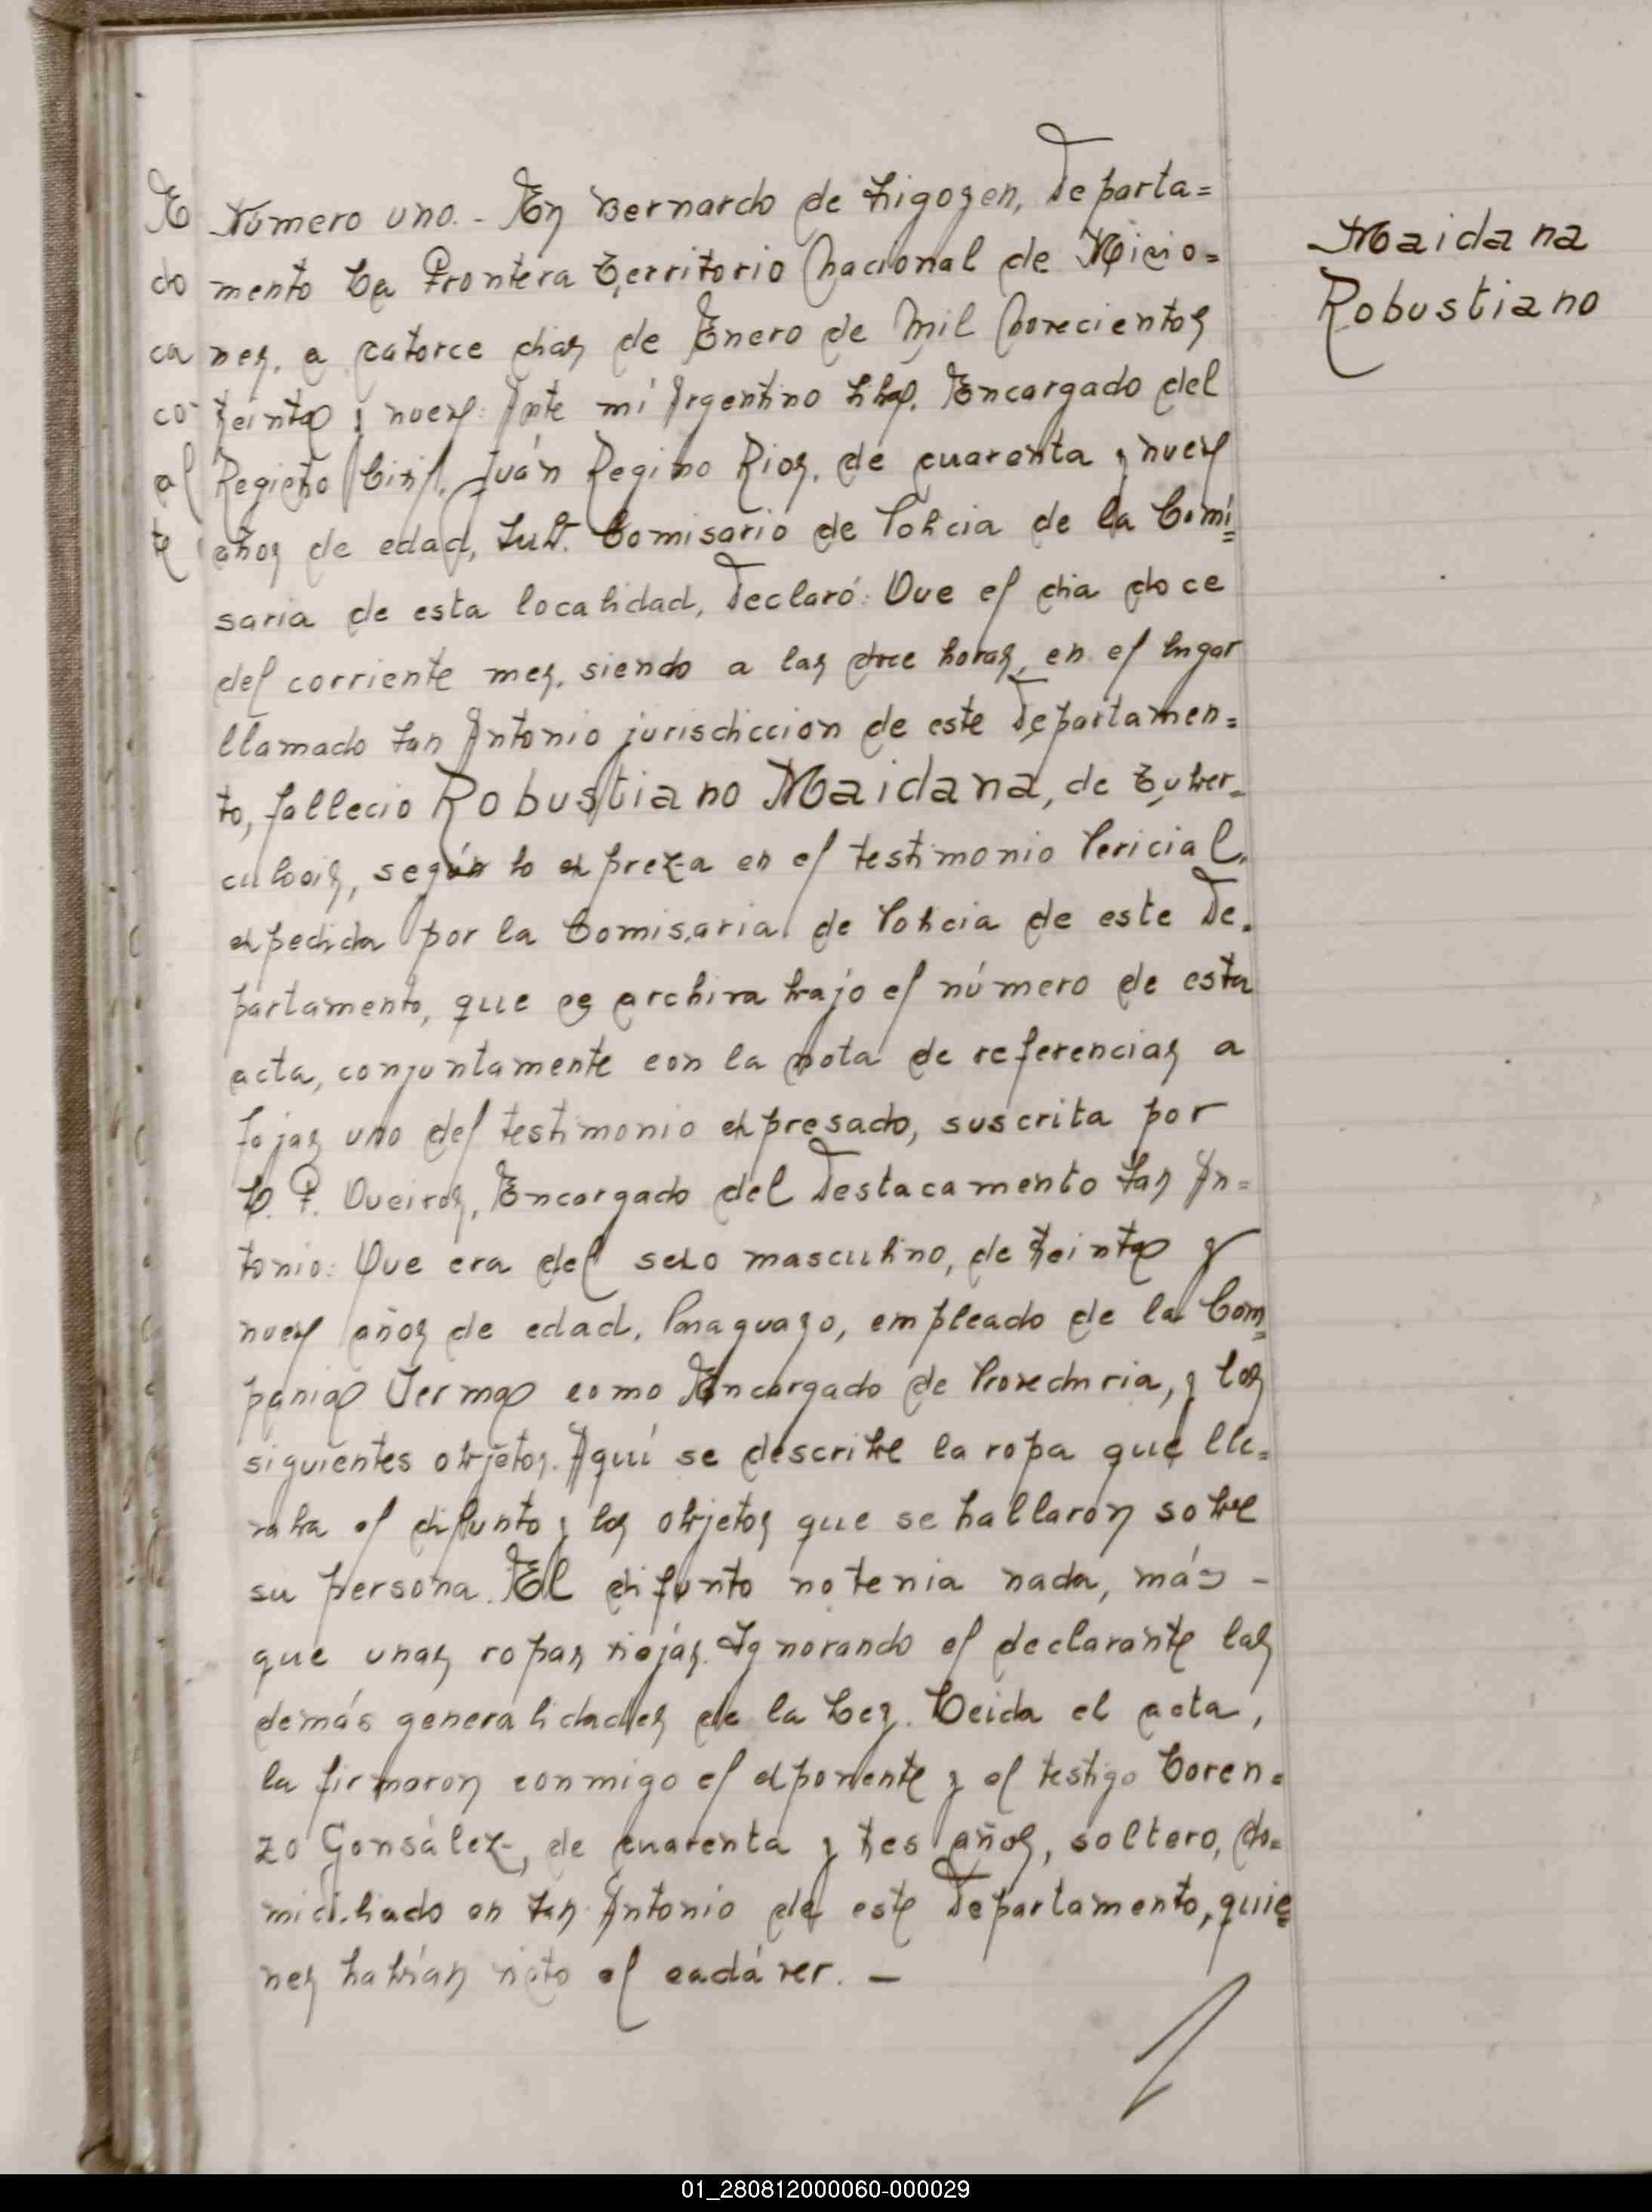 Maidana
Robustiano
Número uno.- En Bernardo de Yrigoyen, Departa=
mento La Frontera Territorio Nacional de Misio=
nes, a catorce dias de Enero de Mil Novecientos
treinta y nueve: Ante mí Argentino Encargado del
Registro Civil, Juán Regino Rios, de cuarenta y nueve
años de edad, Sub. Comisario de Policia de la Comi=
saria de esta localidad, Declaró: Que el dia doce
del corriente mes, siendo a las doce horas, en el lugar
llamado San Antonio jurisdiccion de este Departamen=
to, fallecio Robustiano Maidana, de Tuber=
culosis, según lo expreza en el testimonio Pericial,
expedida por la Comisaria de Policia de este De=
partamento, que se archiva bajo el número de esta
acta, conjuntamente con la nota de referencias a
fojas uno del testimonio expresado, suscrita por
L. F. Queiros, Encargado del Destacamento San An=
tonio: Que era del sexo masculino, de treinta y
nueve años de edad, Paraguayo, empleado de la Com=
pania Yerma como Encargado de Proveduria, y los
siguientes objetos. Aquí se describe la ropa que lle=
vaba el difunto y los objetos que se hallaron sobre
su persona. El difunto no tenia nada, más -
que unas ropas viejas. Ignorando el declarante las
demás generalidades de la Ley. Leida el acta,
la firmaron conmigo el exponente y el testigo Loren=
zo Gonsález, de cuarenta y tres años, soltero, do=
miciliado en San Antonio de este Departamento, quie=
nes habían visto el cadáver. —
01_280812000060-000029